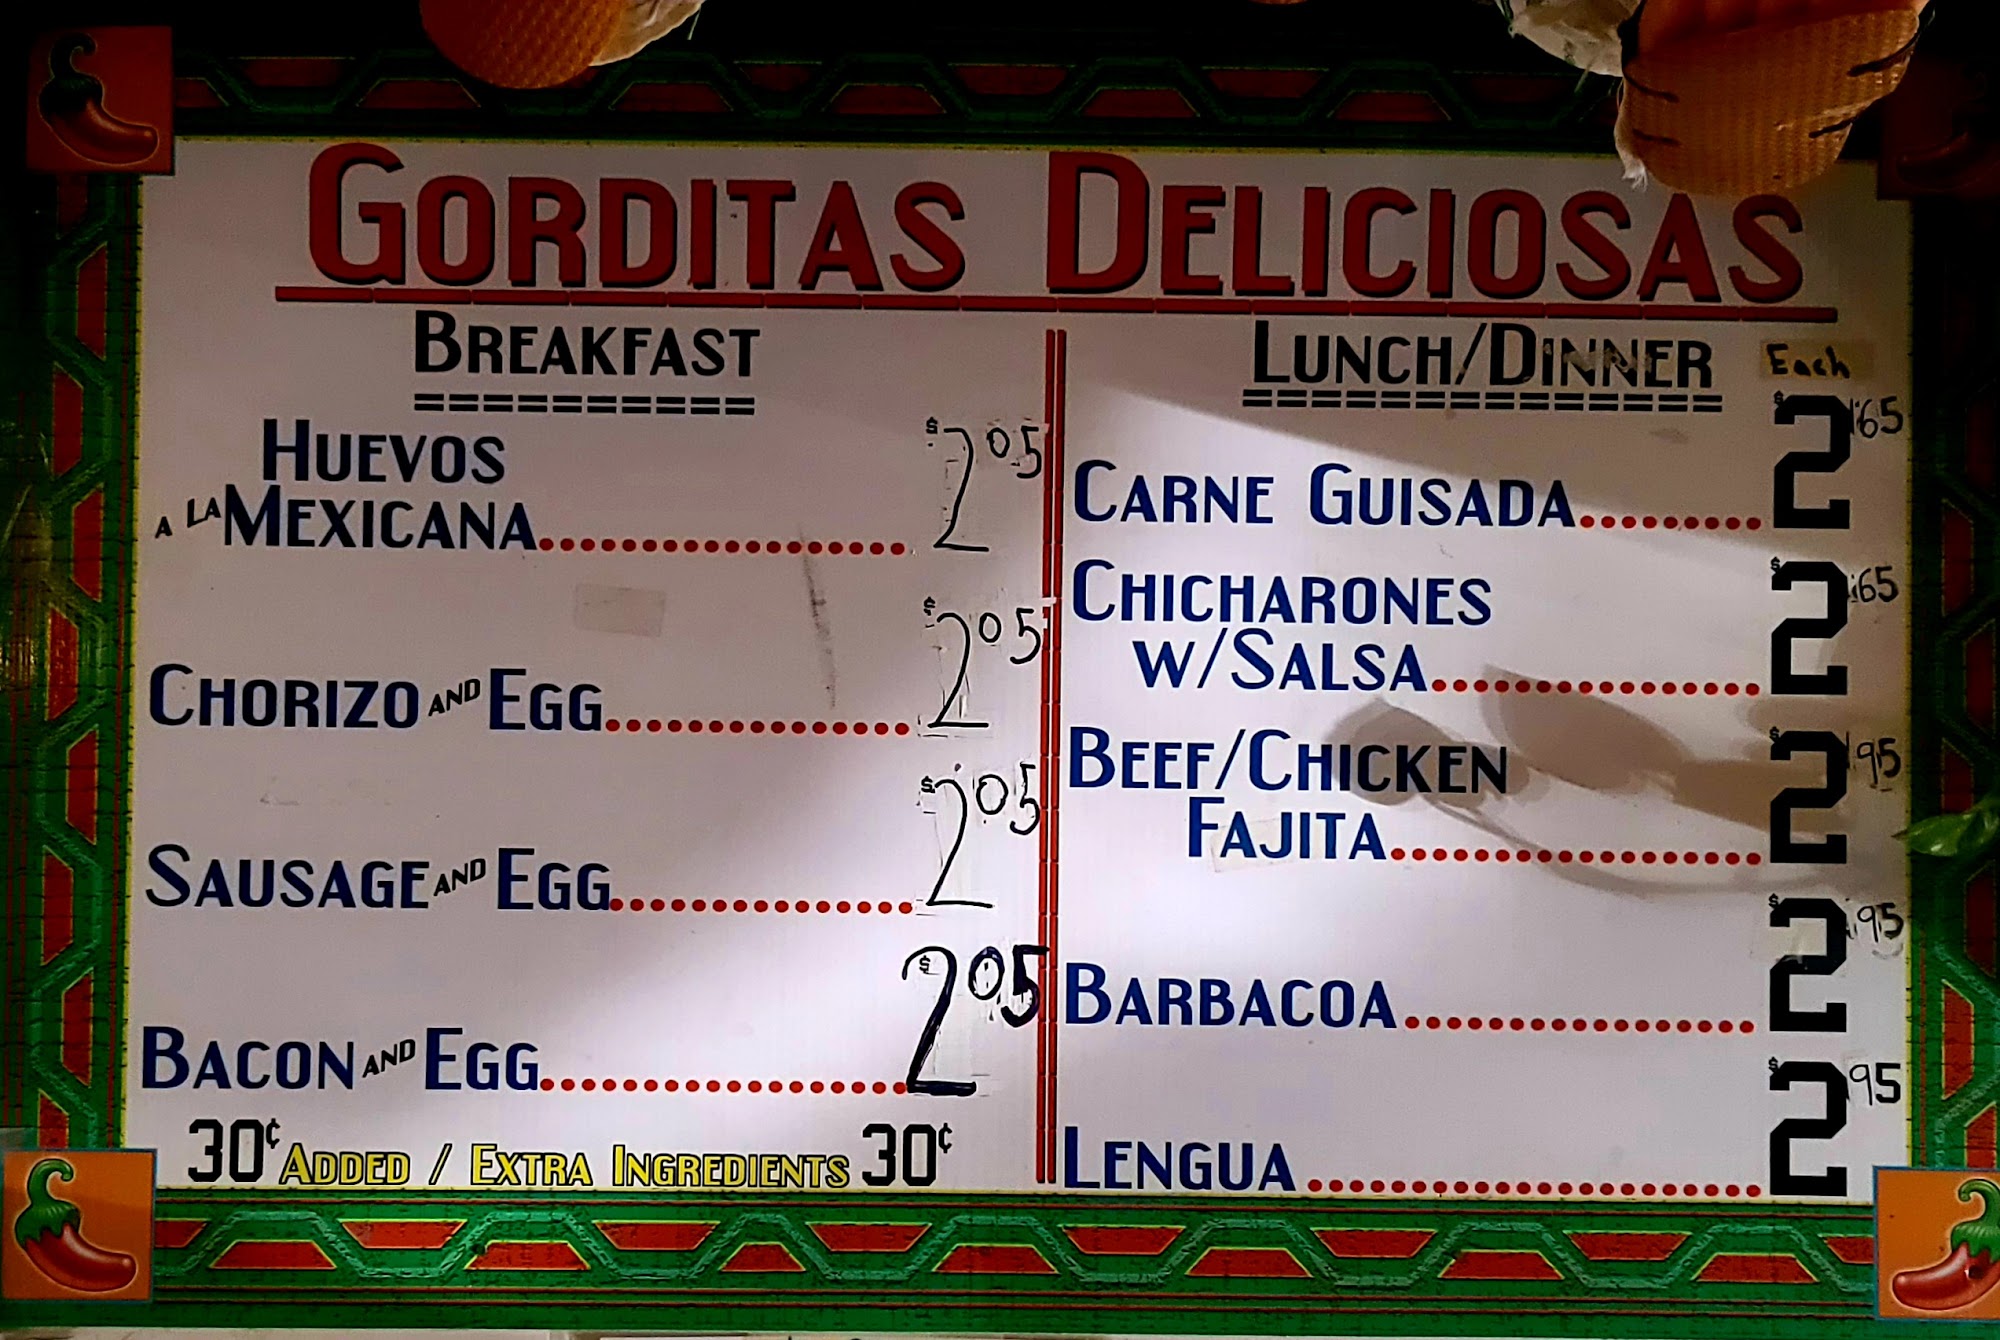 GORDITAS DELICIOSAS
BREAKFAST
HUEVOS
A LA MEXICANA $2.05
CHORIZO AND EGG $2.05
SAUSAGE AND EGG $2.05
BACON AND EGG $2.05
30¢ ADDED / EXTRA INGREDIENTS 30¢
LUNCH/DINNER Each
CARNE GUISADA $2.65
CHICHARONES
W/SALSA $2.65
BEEF/CHICKEN
FAJITA $2.95
BARBACOA $2.95
LENGUA $2.95